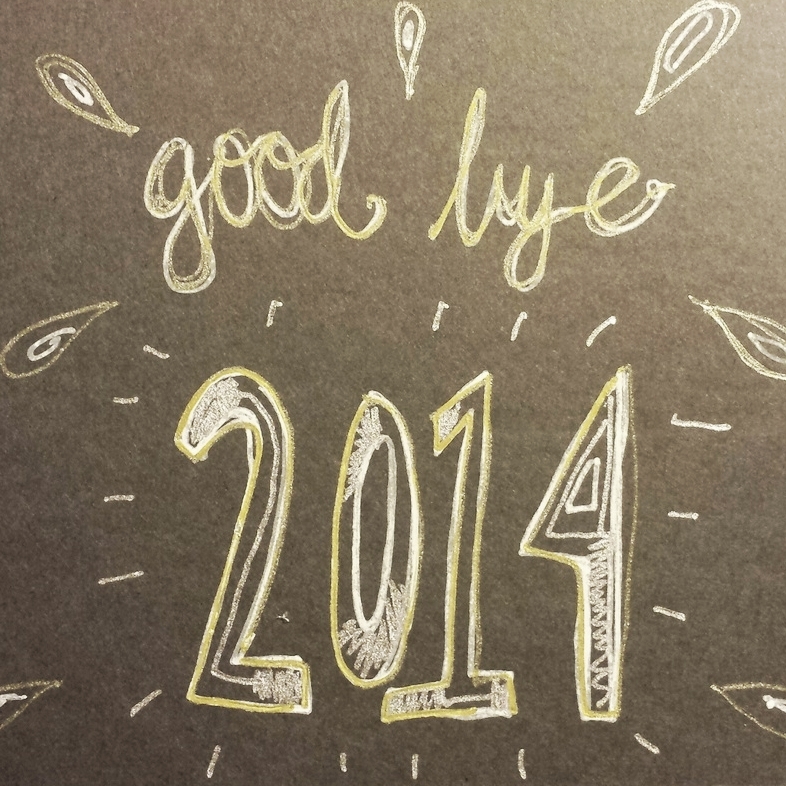 good bye
2014